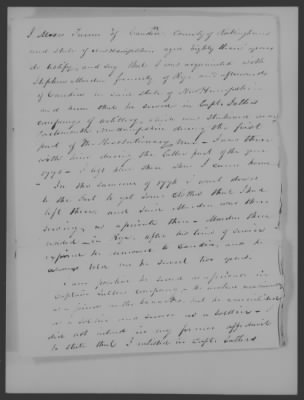 I Moses Turner of Candia County of Rockingham
and State of New Hampshire aged eighty three years
do testify and say that I was acquainted with
Stephen Marden formerly of Rye and afterwards
of Candia in said state of New Hampshire
and knew that he served in Capt.
company of artillery, which was stationed near
Portsmouth New Hampshire during the first
part of the Revolutionary War - I was there
with him during the latter part of the year
1775 - I left him there when I came home
In the summer of 1776 I went down
to the Fort to get some clothes that I had
left there, and said Marden was then
serving as a private there - Marden then
resided in Rye, after his time of service
expired he removed to Candia, and he
always told me he served two years.
I am positive he served as a private in
Captain company - he worked
as a joiner on the but he was enlisted
as a soldier, and served as a soldier - I
did not intend in my former affidavit
to state that I enlisted in Capt.